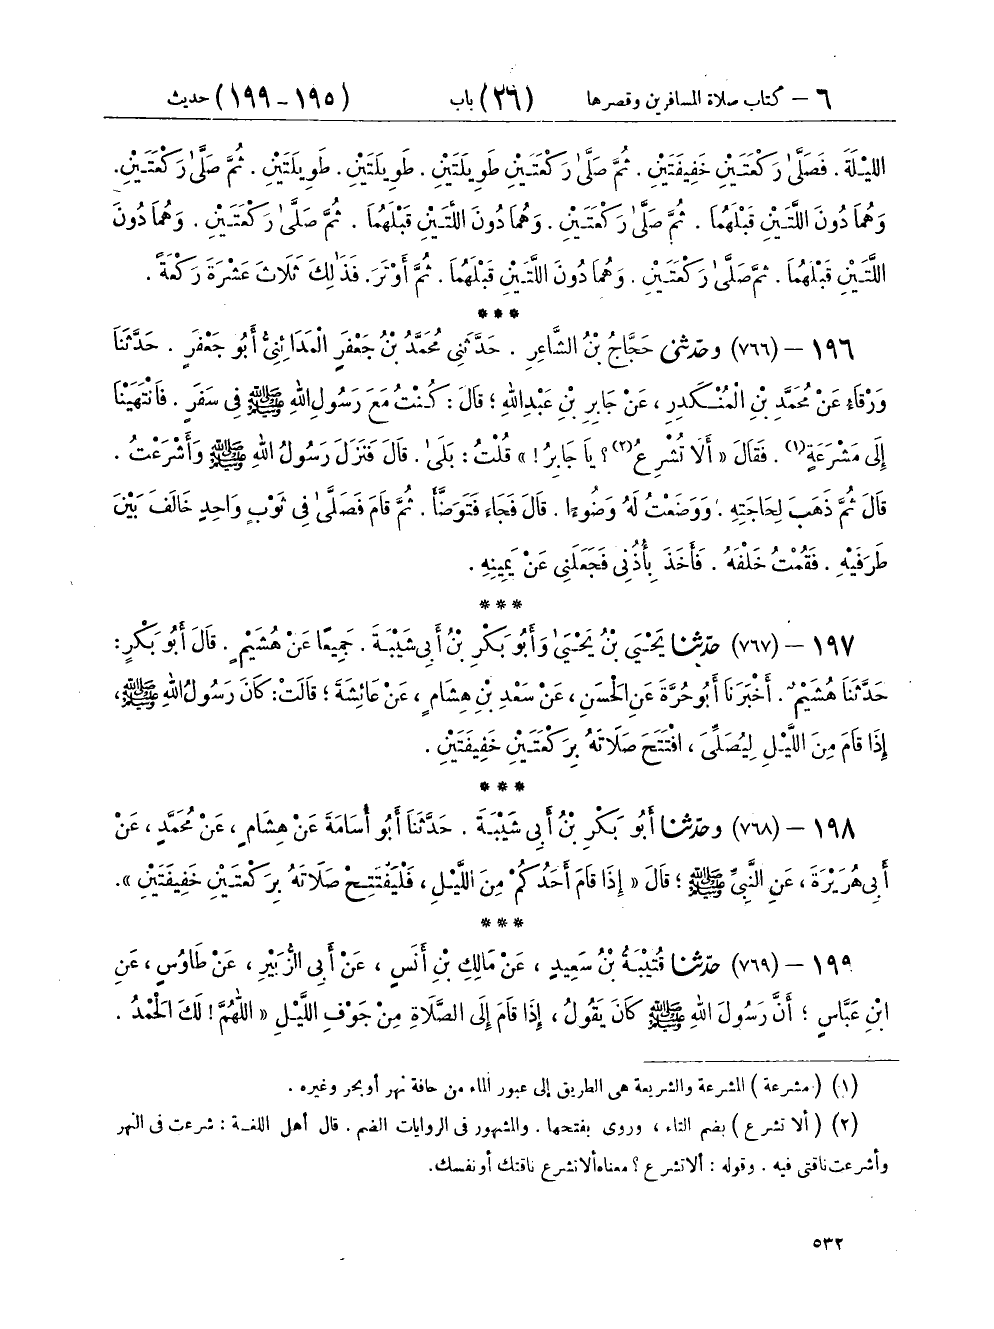 ٦ — كتاب صلاة المسافرين وقصرها (٢٦) باب (١٩٥ — ١٩٩) حديث
اللَّيْلَةَ . فَصَلَّىٰ رَكْعَتَيْنِ خَفِيفَتَيْنِ . ثُمَّ صَلَّىٰ رَكْعَتَيْنِ طَوِيلَتَيْنِ . طَوِيلَتَيْنِ . طَوِيلَتَيْنِ . ثُمَّ صَلَّىٰ رَكْعَتَيْنِ .
وَهُمَا دُونَ اللَّتَيْنِ قَبْلَهُمَا . ثُمَّ صَلَّىٰ رَكْعَتَيْنِ . وَهُمَا دُونَ اللَّتَيْنِ قَبْلَهُمَا . ثُمَّ صَلَّىٰ رَكْعَتَيْنِ . وَهُمَا دُونَ
اللَّتَيْنِ قَبْلَهُمَا . ثُمَّ صَلَّىٰ رَكْعَتَيْنِ . وَهُمَا دُونَ اللَّتَيْنِ قَبْلَهُمَا . ثُمَّ أَوْتَرَ . فَذَٰلِكَ ثَلَاثَ عَشْرَةَ رَكْعَةً .
***
١٩٦ — (٧٦٦) وحدّثنى حَجَّاجُ بْنُ الشَّاعِرِ . حَدَّثَنِى مُحَمَّدُ بْنُ جَعْفَرٍ الْمَدَائِنِىُّ أَبُو جَعْفَرٍ . حَدَّثَنَا
وَرْقَاءُ عَنْ مُحَمَّدِ بْنِ الْمُنْكَدِرِ ، عَنْ جَابِرِ بْنِ عَبْدِ اللهِ ؛ قَالَ : كُنْتُ مَعَ رَسُولِ اللهِ ﷺ فِى سَفَرٍ . فَانْتَهَيْنَا
إِلَى مَشْرَعَةٍ (١) . فَقَالَ « أَلَا تُشْرِعُ (٢) ؟ يَا جَابِرُ ! » قُلْتُ : بَلَىٰ . قَالَ فَنَزَلَ رَسُولُ اللهِ ﷺ وَأَشْرَعْتُ .
قَالَ ثُمَّ ذَهَبَ لِحَاجَتِهِ . وَوَضَعْتُ لَهُ وَضُوءًا . قَالَ فَجَاءَ فَتَوَضَّأَ . ثُمَّ قَامَ فَصَلَّىٰ فِى ثَوْبٍ وَاحِدٍ خَالَفَ بَيْنَ
طَرَفَيْهِ . فَقُمْتُ خَلْفَهُ . فَأَخَذَ بِأُذُنِى فَجَعَلَنِى عَنْ يَمِينِهِ .
***
١٩٧ — (٧٦٧) حدّثنا يَحْيَىٰ بْنُ يَحْيَىٰ وَأَبُو بَكْرِ بْنُ أَبِى شَيْبَةَ . جَمِيعًا عَنْ هُشَيْمٍ . قَالَ أَبُو بَكْرٍ :
حَدَّثَنَا هُشَيْمٌ . أَخْبَرَنَا أَبُو حُرَّةَ عَنِ الْحَسَنِ ، عَنْ سَعْدِ بْنِ هِشَامٍ ، عَنْ عَائِشَةَ ؛ قَالَتْ : كَانَ رَسُولُ اللهِ ﷺ ،
إِذَا قَامَ مِنَ اللَّيْلِ لِيُصَلِّىَ ، افْتَتَحَ صَلَاتَهُ بِرَكْعَتَيْنِ خَفِيفَتَيْنِ .
***
١٩٨ — (٧٦٨) وحدّثنا أَبُو بَكْرِ بْنُ أَبِى شَيْبَةَ . حَدَّثَنَا أَبُو أُسَامَةَ عَنْ هِشَامٍ ، عَنْ مُحَمَّدٍ ، عَنْ
أَبِى هُرَيْرَةَ ، عَنِ النَّبِىِّ ﷺ ؛ قَالَ « إِذَا قَامَ أَحَدُكُمْ مِنَ اللَّيْلِ ، فَلْيَفْتَتِحْ صَلَاتَهُ بِرَكْعَتَيْنِ خَفِيفَتَيْنِ » .
***
١٩٩ — (٧٦٩) حدّثنا قُتَيْبَةُ بْنُ سَعِيدٍ ، عَنْ مَالِكِ بْنِ أَنَسٍ ، عَنْ أَبِى الزُّبَيْرِ ، عَنْ طَاوُسٍ ، عَنِ
ابْنِ عَبَّاسٍ ؛ أَنَّ رَسُولَ اللهِ ﷺ كَانَ يَقُولُ ، إِذَا قَامَ إِلَى الصَّلَاةِ مِنْ جَوْفِ اللَّيْلِ « اللّٰهُمَّ ! لَكَ الْحَمْدُ .
(١) (مشرعة) المشرعة والشريعة هى الطريق إلى عبور الماء من حافة نهر أو بحر وغيره .
(٢) (ألا تشرع) بضم التاء ، وروى بفتحها . والمشهور فى الروايات الضم . قال أهل اللغة : شرعت فى النهر
وأشرعت ناقتى فيه . وقوله : ألا تشرع ؟ معناه ألا تشرع ناقتك أو نفسك .
٥٣٢